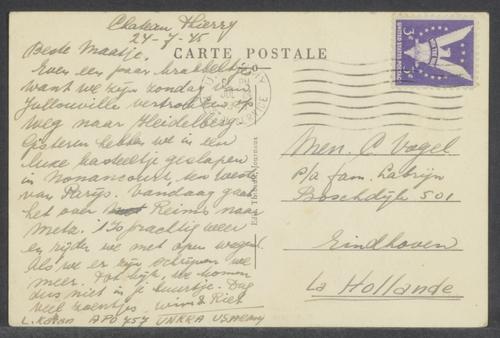 Chateau Thierry
24-7-45
CARTE POSTALE
Beste Maatje,
Even een paar krabbeltjes
want we zijn zondag van
Jullouville vertrokken op
weg naar Heidelberg.
Gisteren hebben we in een
luxe kasteeltje geslapen
in Nonancourt, ten weste
van Parijs. Vandaag gaat
het over Reims naar
Metz. 't Is prachtig weer
en rijden we met open wagen.
Als we er zijn schrijven we
meer. Tot kijk, we komen
dus niet in je buurtje. Dag
veel zoentjes. Wim & Riet
L. APO 757 UNRRA US Army
Men. C Vogel
p/a fam. Labrijn
Boschdijk 501
Eindhoven
La Hollande
UNITED STATES POSTAGE
WIN THE WAR
3¢